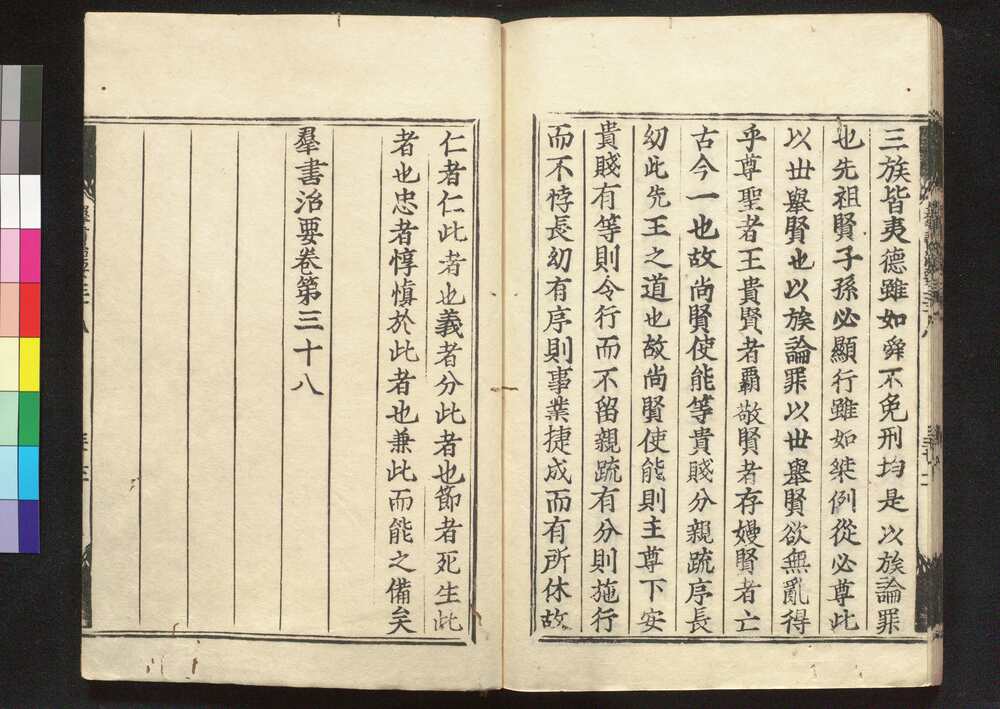 三族皆夷德雖如舜不免刑均是以族論罪
也先祖賢子孫必顯行雖如桀例從必尊此
以世舉賢也以族論罪以世舉賢欲無亂得
乎尊聖者王貴賢者霸敬賢者存嫚賢者亡
古今一也故尚賢使能等貴賤分親疏序長
幼此先王之道也故尚賢使能則主尊下安
貴賤有等則令行而不留親疏有分則施行
而不悖長幼有序則事業捷成而有所休故
仁者仁此者也義者分此者也節者死生此
者也忠者惇慎於此者也兼此而能之備矣
羣書治要卷第三十八